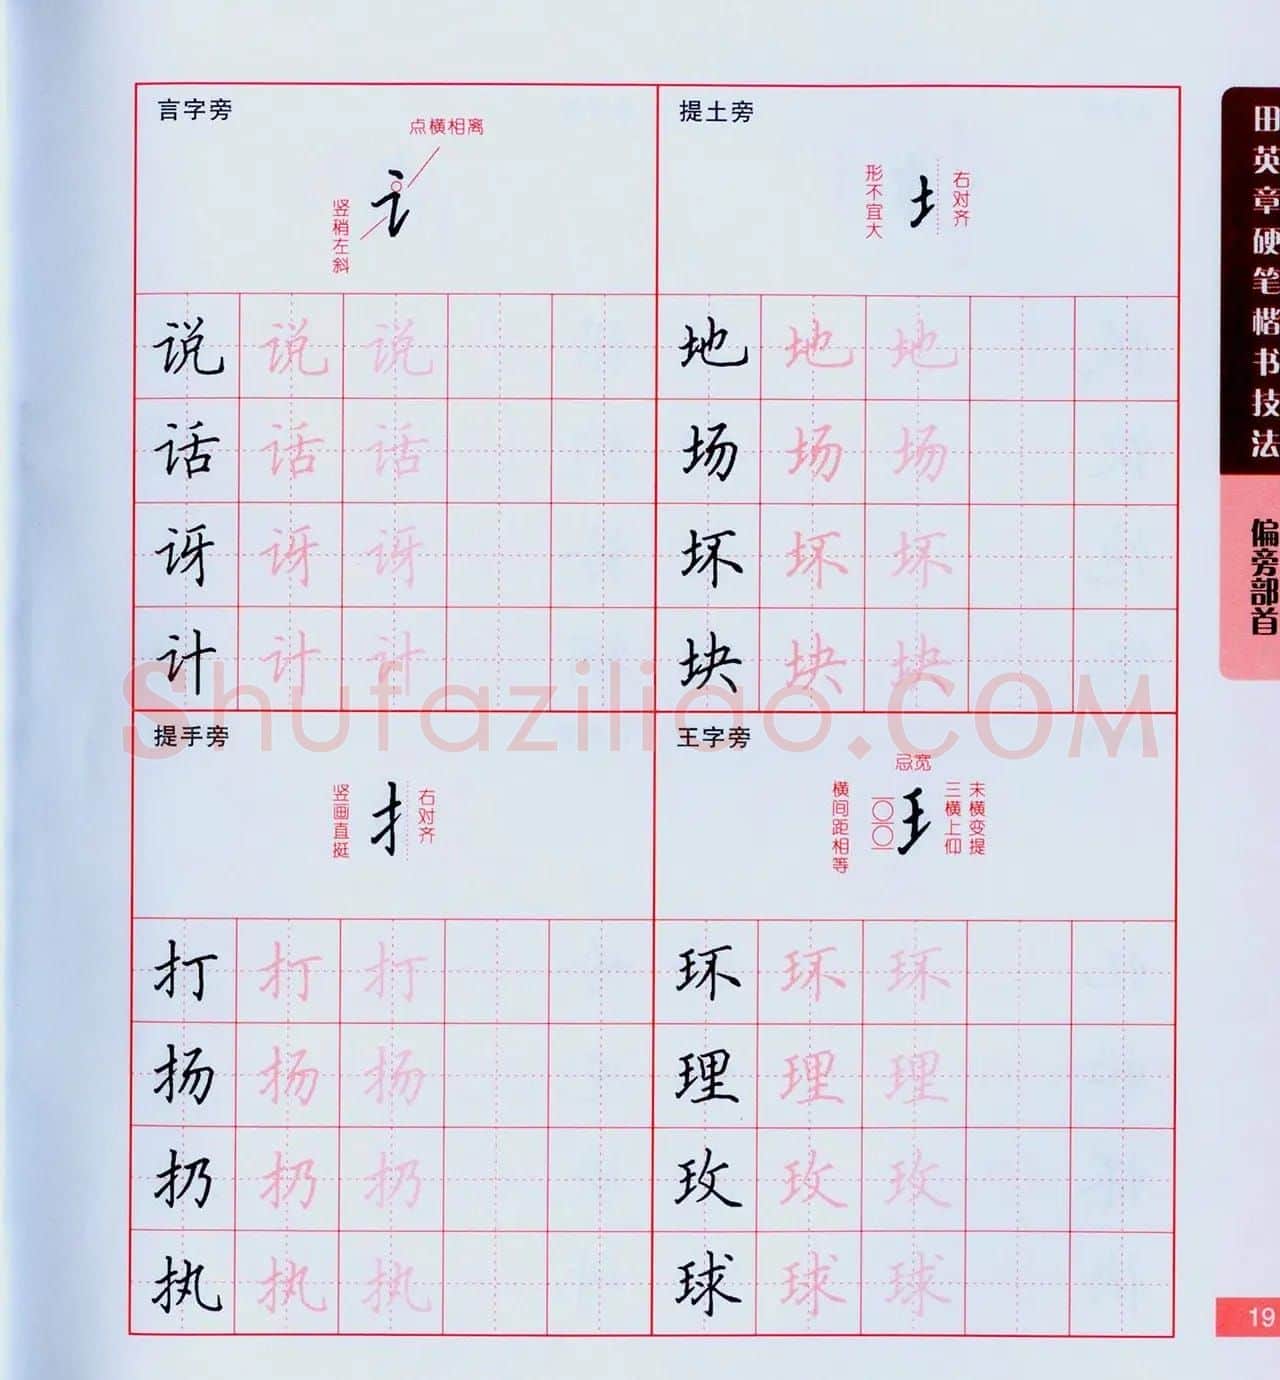 言字旁
点横相离
竖稍左斜
说 说 说
话 话 话
讶 讶 讶
计 计 计
提土旁
形不宜大
右对齐
地 地 地
场 场 场
坏 坏 坏
块 块 块
提手旁
竖画直挺
右对齐
打 打 打
扬 扬 扬
扔 扔 扔
执 执 执
王字旁
忌宽
横间距相等
三横上仰
末横变提
环 环 环
理 理 理
玫 玫 玫
球 球 球
田英章硬笔楷书技法
偏旁部首
19
Shufaziliao.COM